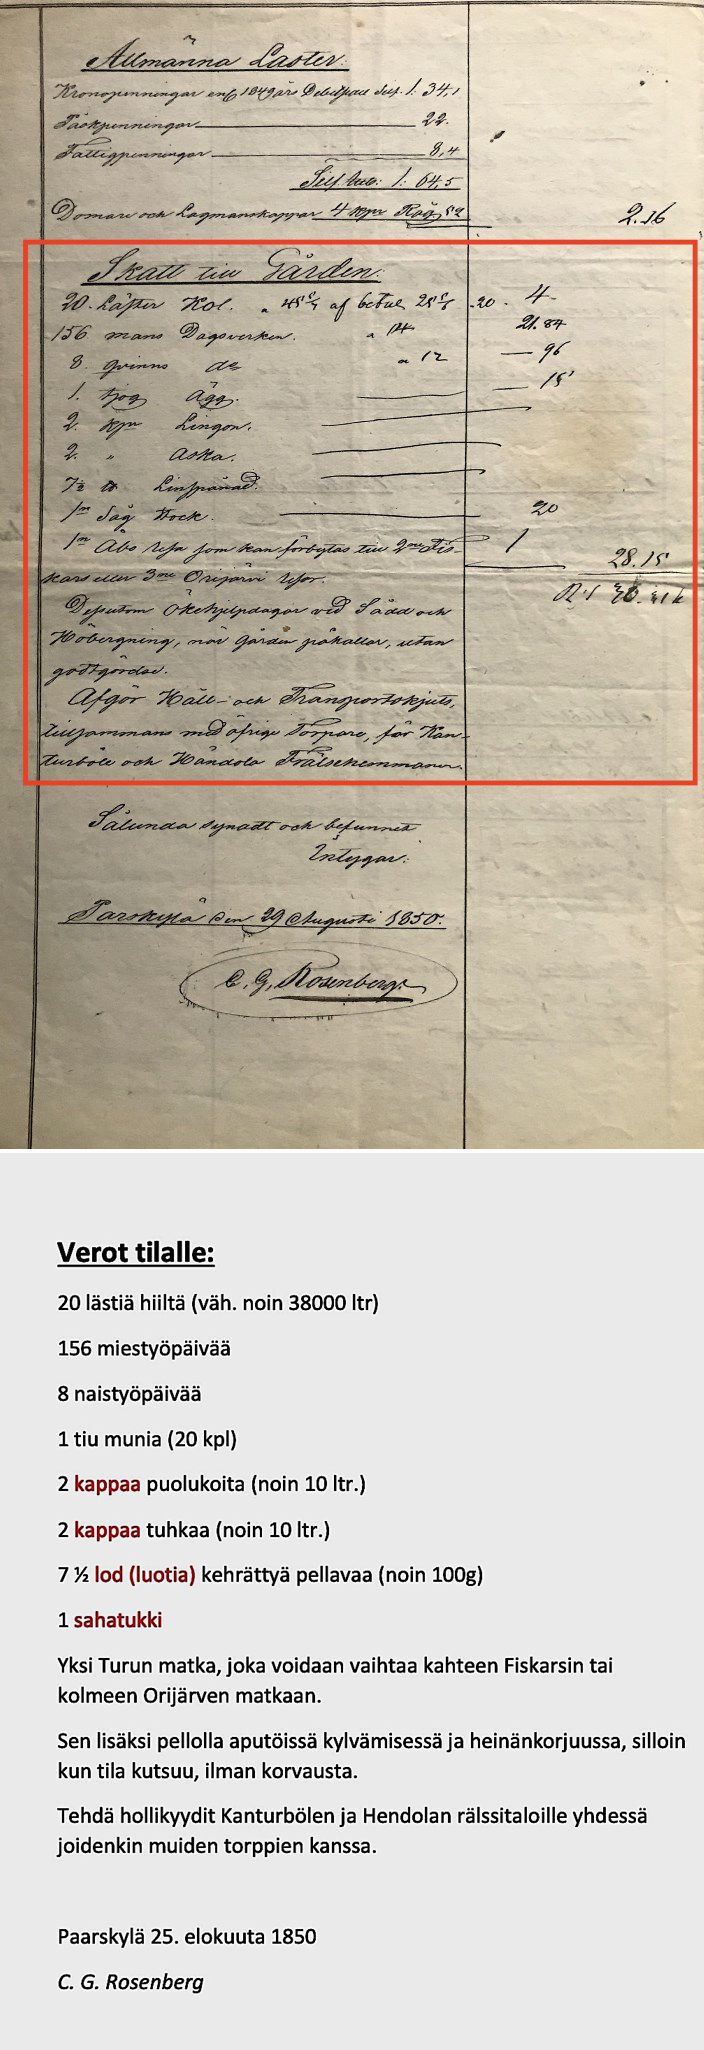 Allmänna Laster:
Kronopenningar enl 1849 års Debetsedel Silf. 1. 34,1
Räkpenningar 22.
Fattigpenningar 8,4
Silf. Rub: 1: 64,5
Domare och Lagmanskappar 4 kpr Råg 52 2.16
Skatt till Gården:
20. Läster Kol. af betal 20. 4
156 mans Dagsverken. a 14 21.84
8. qvinns do a 12 — 96
1. tjog Ägg. — 15
2. kpr Lingon.
2. " Aska.
7½ ℔ Linspånad.
1 Såg Stock. 20
1 Åbo resa som kan förbytas till 2ne Fis- 1 28.15
kars eller 3ne Orijärvi resor.
Dessutom Ökehjelpdagar vid Sådd och
Höbergning, när Gården påkallar, utan
godtgörelse.
Afgör Håll- och Transportskjuts,
tillsammans med öfrige Torpare, för Kan-
turböle och Händola Frälsehemmaner.
Sålunda synadt och befunnet
Intygar:
Parskylä den 29 Augusti 1850.
C. G. Rosenberg
Verot tilalle:
20 lästiä hiiltä (väh. noin 38000 ltr)
156 miestyöpäivää
8 naistyöpäivää
1 tiu munia (20 kpl)
2 kappaa puolukoita (noin 10 ltr.)
2 kappaa tuhkaa (noin 10 ltr.)
7 ½ lod (luotia) kehrättyä pellavaa (noin 100g)
1 sahatukki
Yksi Turun matka, joka voidaan vaihtaa kahteen Fiskarsin tai
kolmeen Orijärven matkaan.
Sen lisäksi pellolla aputöissä kylvämisessä ja heinänkorjuussa, silloin
kun tila kutsuu, ilman korvausta.
Tehdä hollikyydit Kanturbölen ja Hendolan rälssitaloille yhdessä
joidenkin muiden torppien kanssa.
Paarskylä 25. elokuuta 1850
C. G. Rosenberg